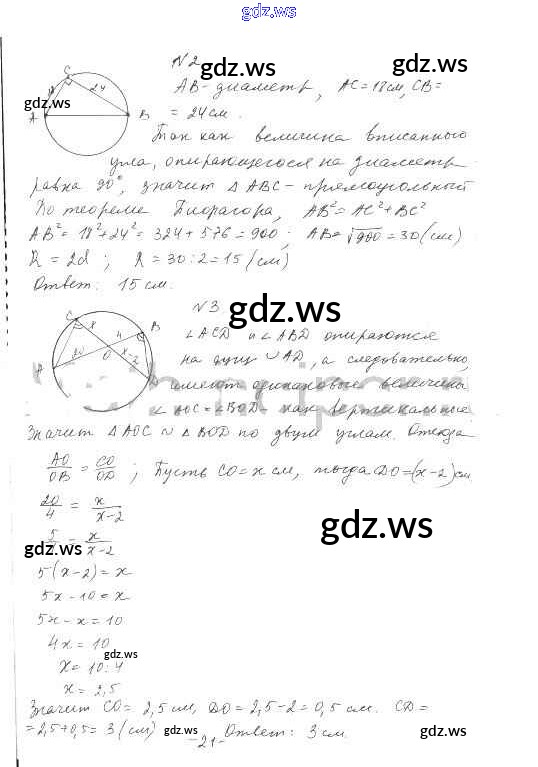 gdz.ws
N2
AB - диаметр, AC = 18 см, CB =
= 24 см.
Так как величина вписанного
угла, опирающегося на диаметр
равна 90°, значит △ABC - прямоугольный
По теореме Пифагора, AB² = AC² + BC²
AB² = 18² + 24² = 324 + 576 = 900; AB = √900 = 30 (см)
R = 2d; R = 30 : 2 = 15 (см)
Ответ: 15 см.
C
24
A
B
gdz.ws
gdz.ws
gdz.ws
N3
gdz.ws
∠ACD и ∠ABD опираются
на дугу ∪AD, а следовательно,
имеют одинаковые величины
∠AOC = ∠BOD - как вертикальные
Значит △AOC ∼ △BOD по двум углам. Отсюда
C
x
4
B
20
O
x-2
A
gdz.ws
gdz.ws
AO/OB = CO/OD; Пусть CO = x см, тогда DO = (x-2) см
20/4 = x/x-2
5 = x/x-2
5(x-2) = x
5x - 10 = x
5x - x = 10
4x = 10
x = 10 : 4
x = 2,5
gdz.ws
gdz.ws
gdz.ws
gdz.ws
Значит CO = 2,5 см, DO = 2,5 - 2 = 0,5 см. CD =
= 2,5 + 0,5 = 3 (см)
Ответ: 3 см
-21-
gdz.ws
gdz.ws
gdz.ws